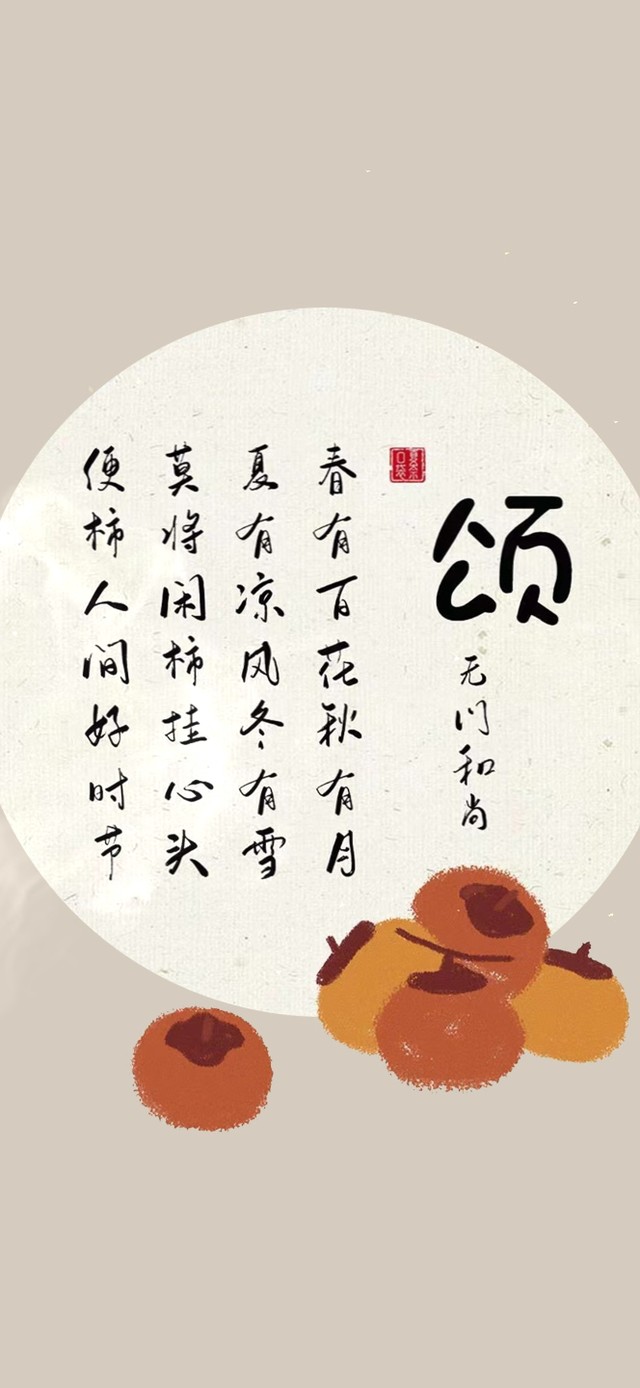 颂
无门和尚
春有百花秋有月
夏有凉风冬有雪
莫将闲柿挂心头
便柿人间好时节